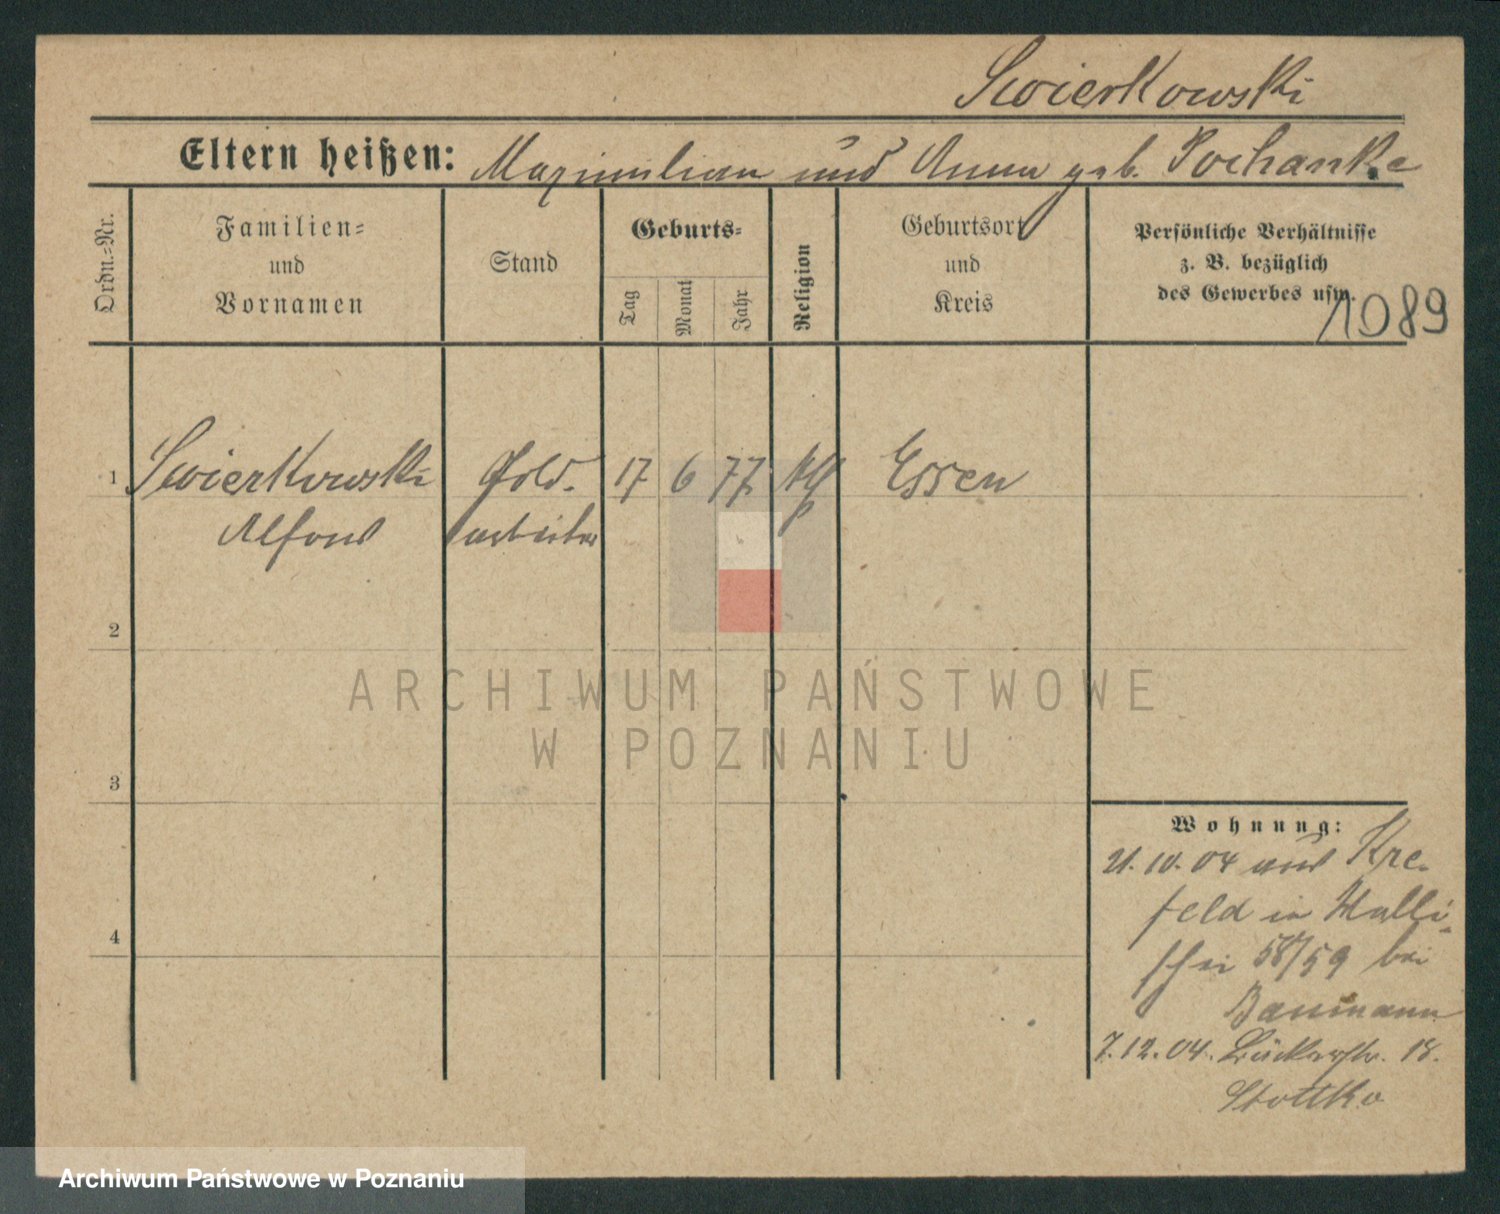 Swierkowski
Eltern heißen: Maximilian und Anna geb. Pochanke
Ordn.-Nr.
Familien-
und
Vornamen
Stand
Geburts-
Tag
Monat
Jahr
Religion
Geburtsort
und
Kreis
Persönliche Verhältnisse
z. B. bezüglich
des Gewerbes usw.
1089
1 Swierkowski Gold- 17 6 77 Essen
Alfons arbeiter
2
ARCHIWUM PAŃSTWOWE
W POZNANIU
3
4
Wohnung:
21.10.04 aus Kre-
feld in Halli-
58/59 bei
Baumann
7.12.04. Bäckerstr. 18.
Archiwum Państwowe w Poznaniu